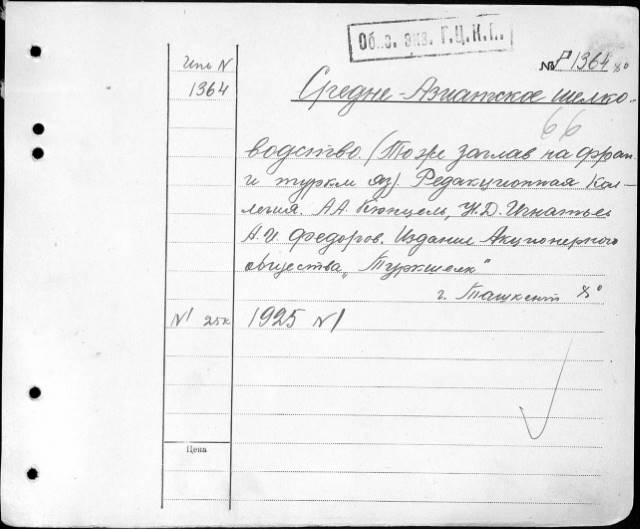 Обяз. экз. Г.Ц.К.П.
№ Р1364 8°
Инв N
1364
Средне-Азиатское шелко-
66
водство. (То же заглав на фран
и туркм яз). Редакционная Кол-
легия. А.А. Кюнцель, Н.Д. Игнатьев
А.И. Федоров. Издание Акционерного
общества „Туркшелк"
г. Ташкент 8°
N1 25к
1925 N1
Цена